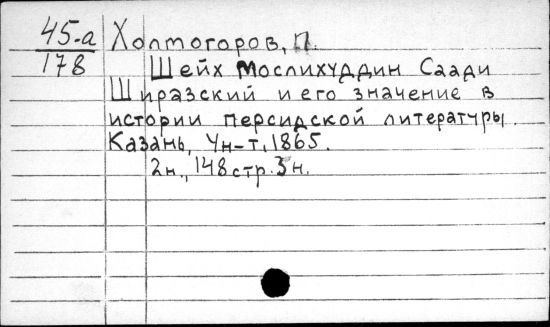 45-а
178
Холмогоров, П.
Шейх Мослихуддин Саади
Ширазский и его значение в
истории персидской литературы.
Казань, Ун-т, 1865.
2н., 148 стр. 3н.